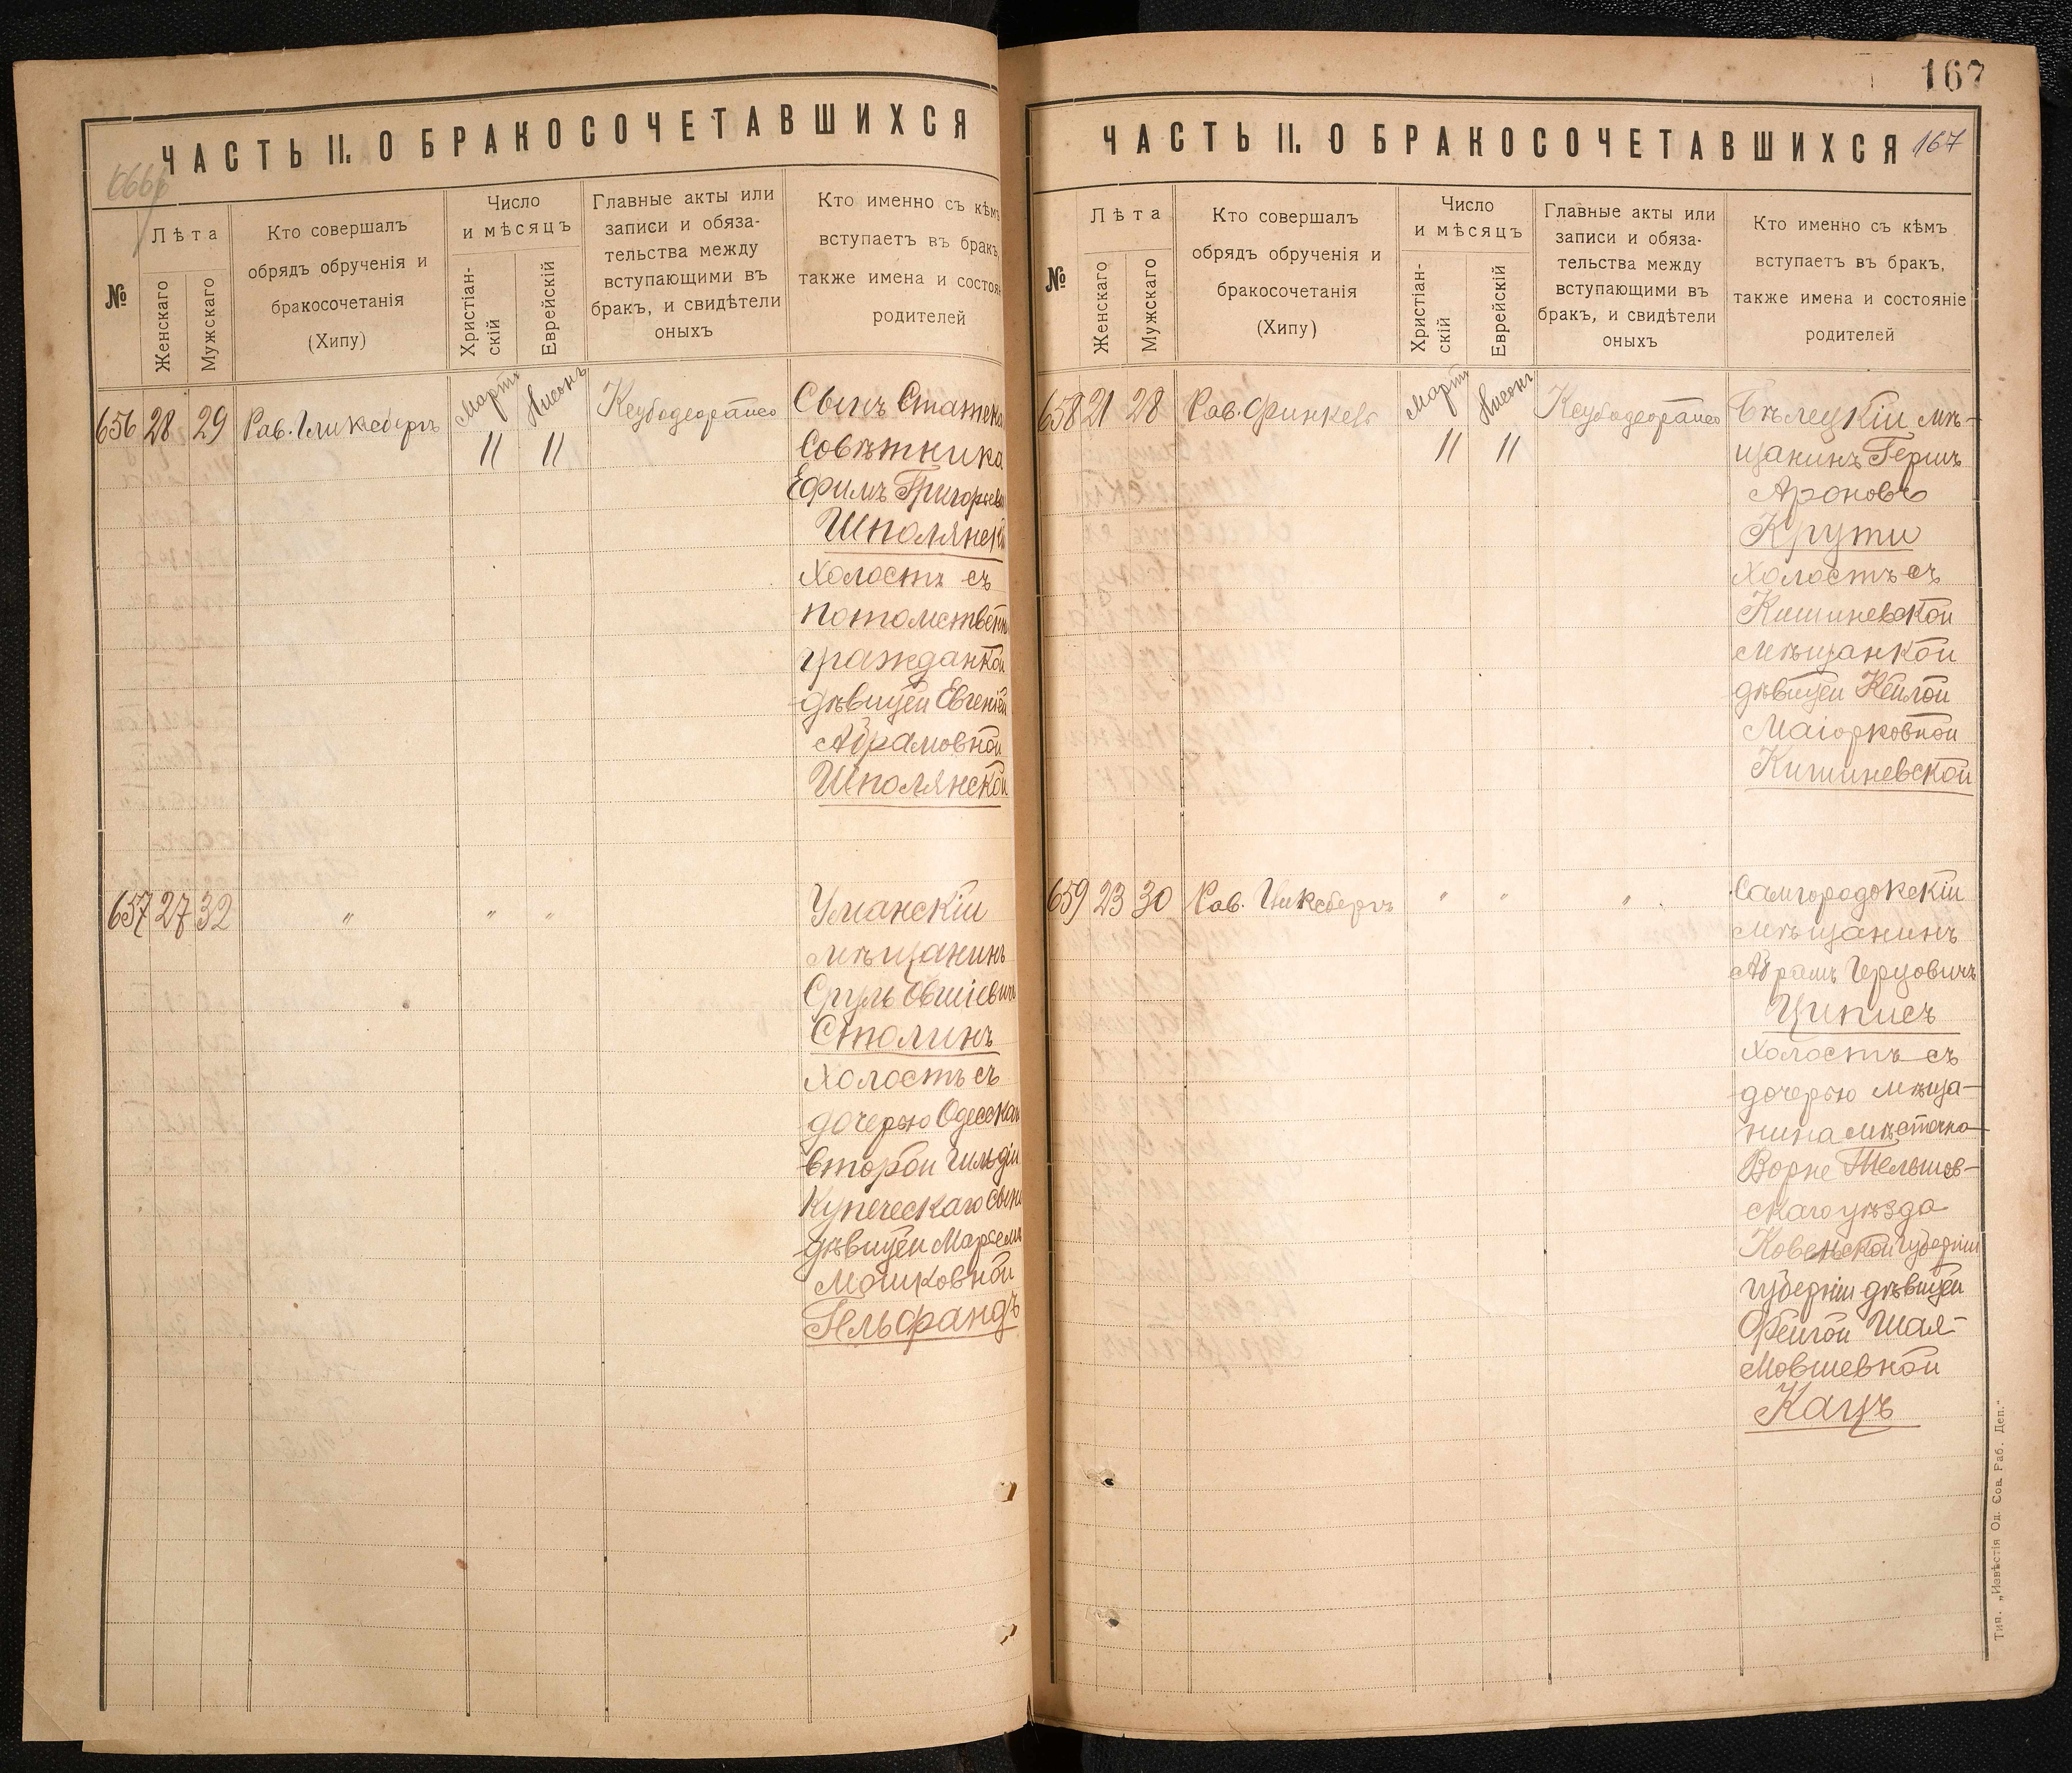 167
ЧАСТЬ II. О БРАКОСОЧЕТАВШИХСЯ
№
Лѣта
Женскаго
Мужскаго
Кто совершалъ
обрядъ обрученія и
бракосочетанія
(Хипу)
Число
и мѣсяцъ
Христіан-
скій
Еврейскій
Главные акты или
записи и обяза-
тельства между
вступающими въ
бракъ, и свидѣтели
оныхъ
Кто именно съ кѣмъ
вступаетъ въ бракъ,
также имена и состоя
родителей
656 28 29 Рав. Гликсбергъ Мартъ Нисонъ
11 11
Сынъ Статска
Совѣтника
Ефимъ Григорьев
Шполянскі
холостъ съ
потомственн
гражданкой
дѣвицей Евгеніей
Абрамовной
Шполянской
657 27 32 " " "
Уманскій
мѣщанинъ
Сруль Овшіевичъ
Столинъ
холостъ съ
дочерью Одесскаг
второй гильдіи
купеческаго сына
дѣвицей
Мошковной
Гельфандъ
ЧАСТЬ II. О БРАКОСОЧЕТАВШИХСЯ 167
№
Лѣта
Женскаго
Мужскаго
Кто совершалъ
обрядъ обрученія и
бракосочетанія
(Хипу)
Число
и мѣсяцъ
Христіан-
скій
Еврейскій
Главные акты или
записи и обяза-
тельства между
вступающими въ
бракъ, и свидѣтели
оныхъ
Кто именно съ кѣмъ
вступаетъ въ бракъ,
также имена и состояніе
родителей
658 21 28 Рав. Финкель Мартъ Нисонъ
11 11
Бѣлецкій мѣ-
щанинъ Гершъ
Ароновъ
Крути
холостъ съ
Кишиневской
мѣщанкой
дѣвицей Кейлой
Маіорковной
Кишиневской
659 23 30 Рав. Гликсбергъ " " "
Самгородокскій
мѣщанинъ
Абрамъ Герцовичъ
Циписъ
холостъ съ
дочерью мѣща-
нина мѣстечка
Ворне Тельшов-
скаго уѣзда
Ковенской губерніи
губерніи дѣвицей
Фейгой Шая-
Мовшевной
Кацъ
Тип. „Извѣстія Од. Сов. Раб. Деп."